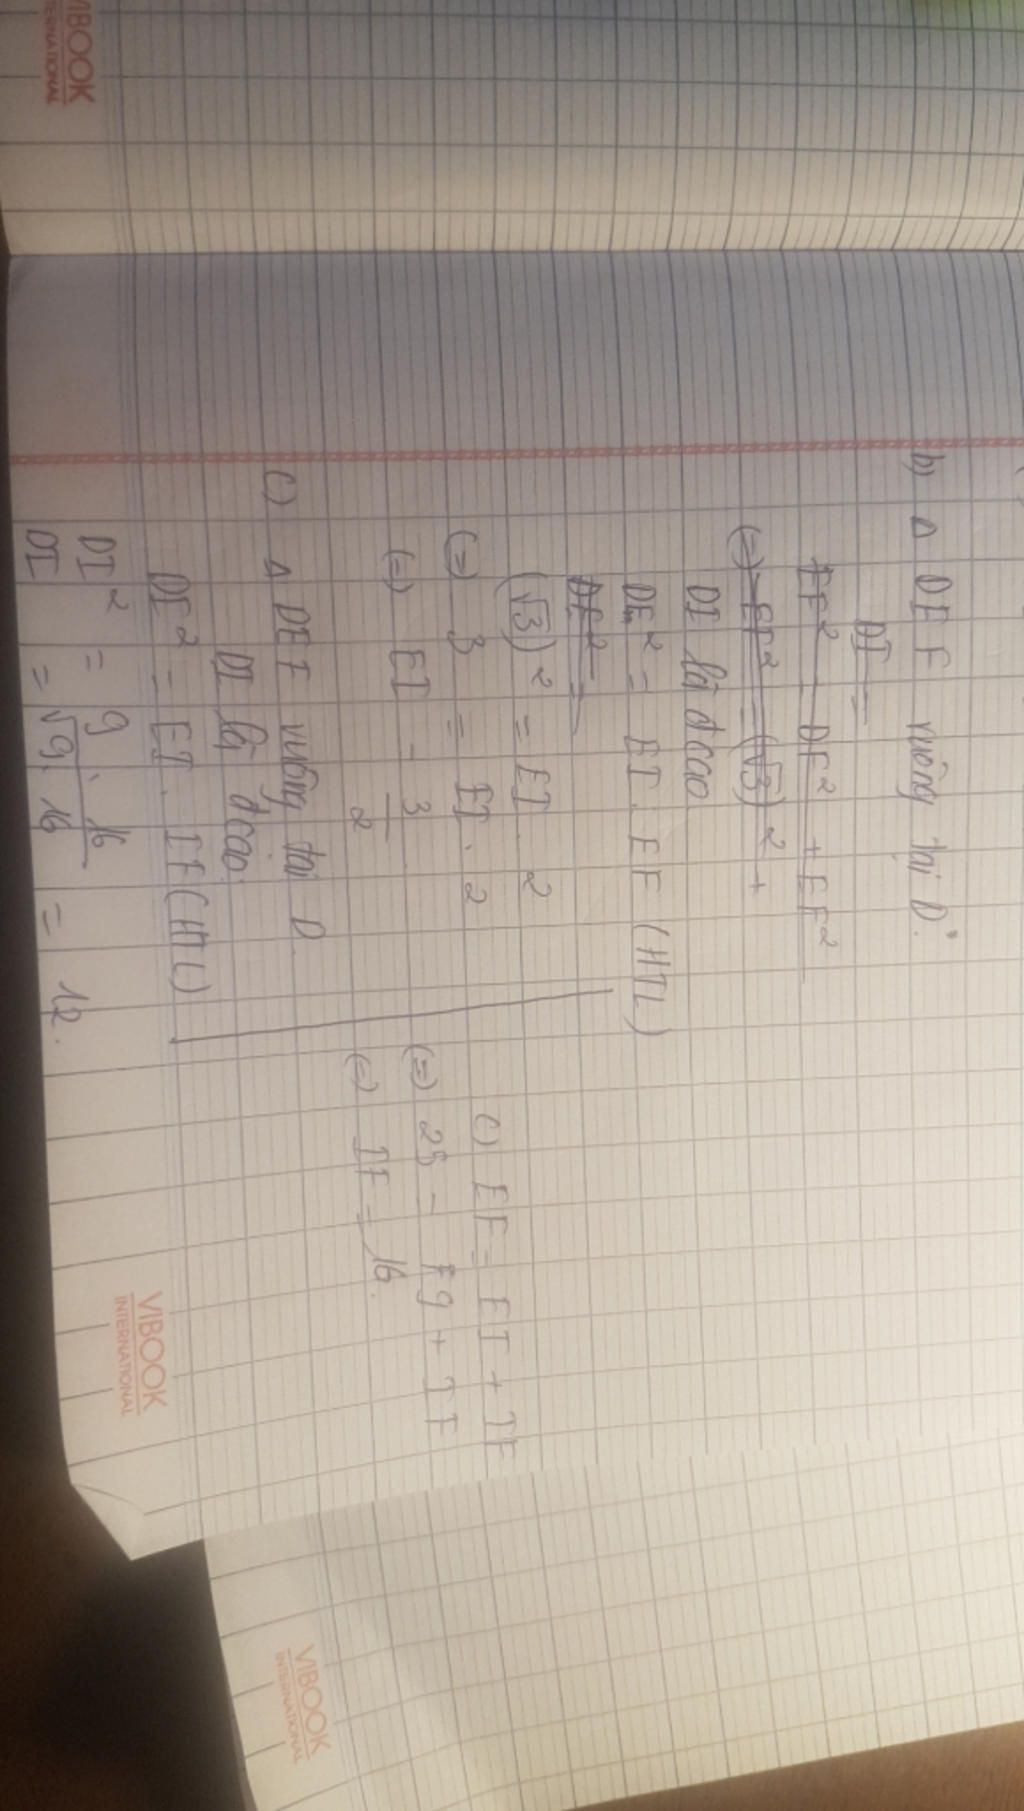 VIBOOK
INTERNATIONAL
b) Δ DEF vuông tại D.
DI =
EF² DF² + EF²
(=) EF² = (√3)² +
DI là đcao
DE² = EI . EF (HTL)
DE² =
(√3)² = EI . 2
(=) 3 = EI . 2
(=) EI = 3/2
c) EF = EI + IF
(=) 25 = 9 + IF
(=) IF = 16.
c) Δ DEF vuông tại D
DI là đcao
DI² = EI . IF (HTL)
DI² = 9 . 16
DI = √9.16 = 12.
VIBOOK
INTERNATIONAL
VIBOOK
INTERNATIONAL